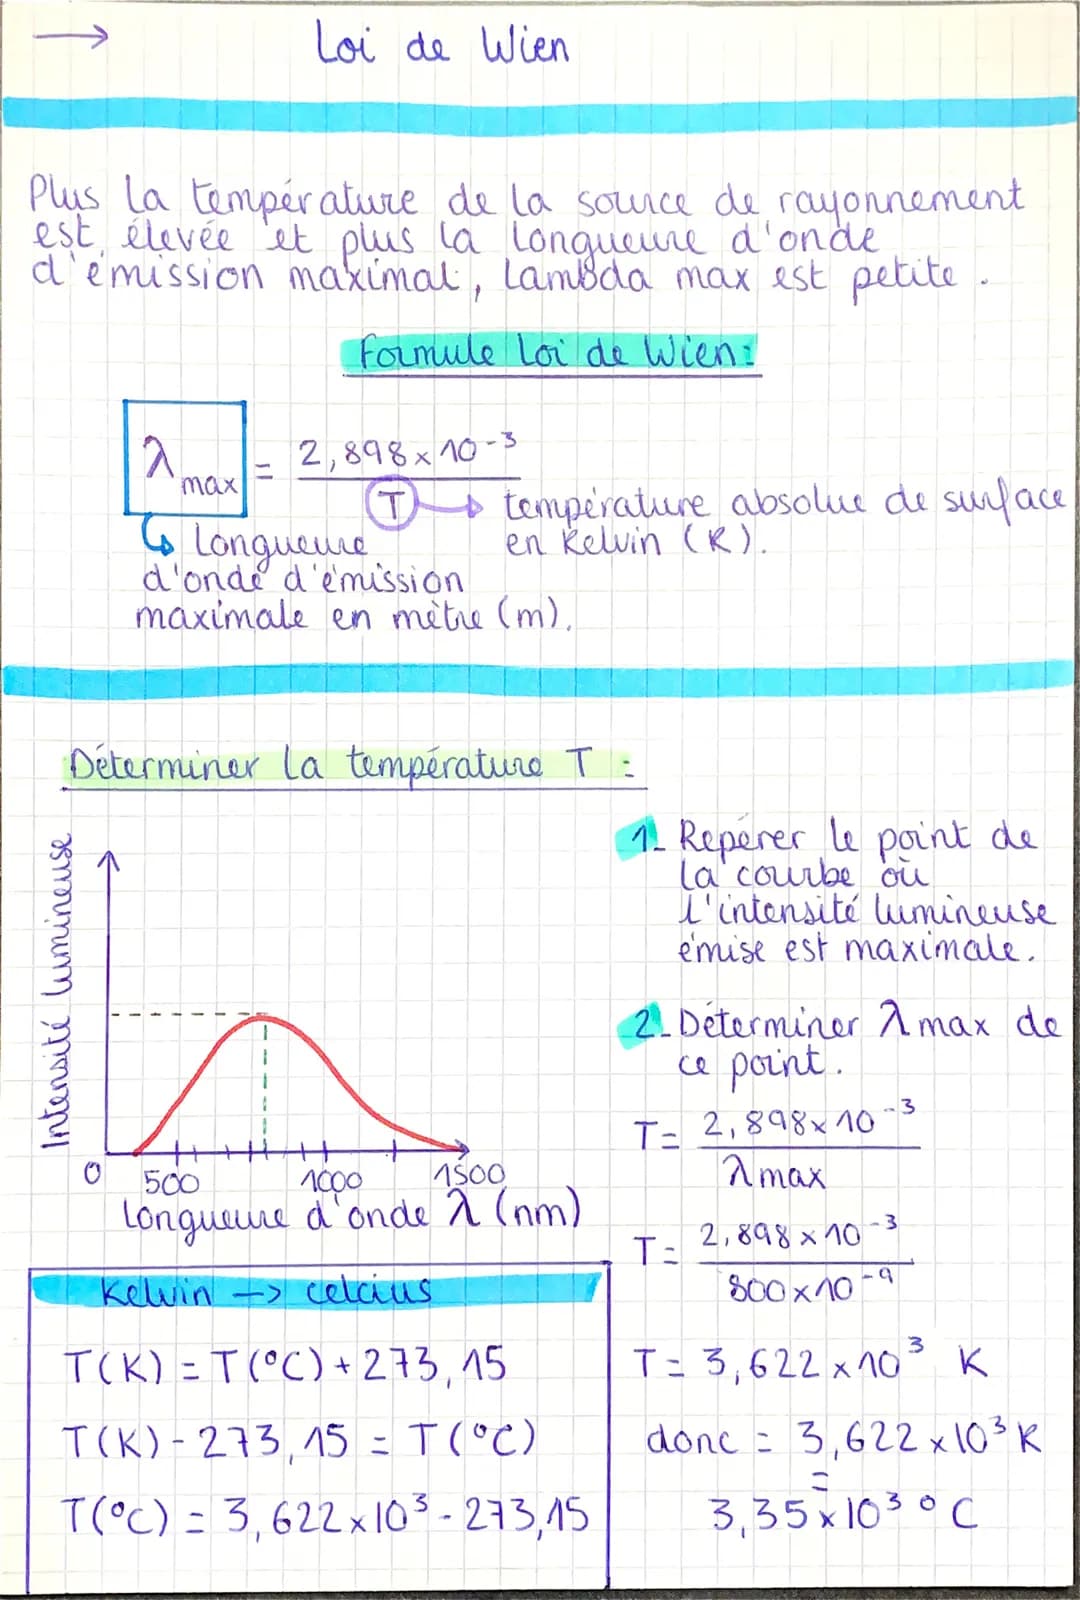 → Loi de Wien
Plus la température de la source de rayonnement
est élevée et plus la longueure d'onde
d'émission maximal, lambda max est petite.
Formule Loi de Wien:
λmax = 2,898 × 10⁻³ / T → température absolue de surface
en Kelvin (K).
↳ Longueure
d'onde d'émission
maximale en mètre (m).
Déterminer la température T :
Intensité lumineuse
0 500 1000 1500
Longueure d'onde λ (nm)
1- Repérer le point de
la courbe où
l'intensité lumineuse
émise est maximale.
2- Déterminer λ max de
ce point.
T = 2,898 × 10⁻³ / λ max
T = 2,898 × 10⁻³ / 800 × 10⁻⁹
T = 3,622 × 10³ K
donc = 3,622 × 10³ K
=
3,35 × 10³ °C
Kelvin → celcius
T(K) = T(°C) + 273,15
T(K) - 273,15 = T(°C)
T(°C) = 3,622 × 10³ - 273,15